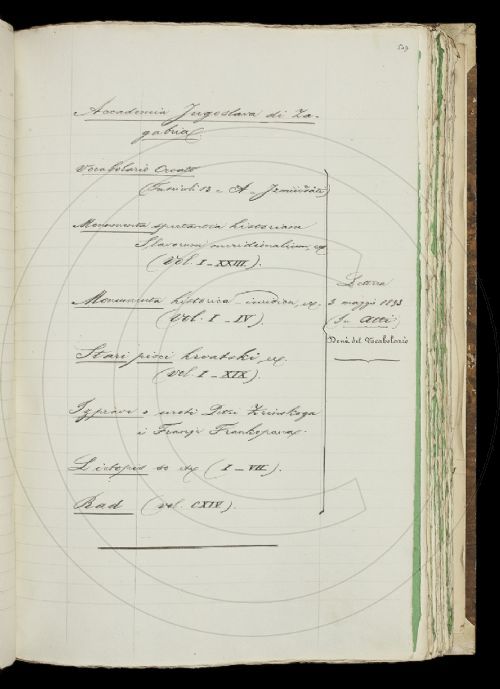 509
Accademia Jugoslava di Za-
gabria
Vocabolario Croato
(Fascicoli 13 - A - Jzmirivati)
Monumenta spectantia historiam
Slavorum meridionalium, etc
(Vol. I - XXIII).
Monumenta historica - iuridica, etc.
(Vol. I - IV).
Stari pisci hrvatski, etc
(vol. I - XIX).
Izprave o uroti Petra Zrinskoga
i Franje Frankopana.
Lietopis etc (I - VII).
Rad (vol. CXIV).
Lettera
3 maggio 1893
(In Atti)
del Vocabolario